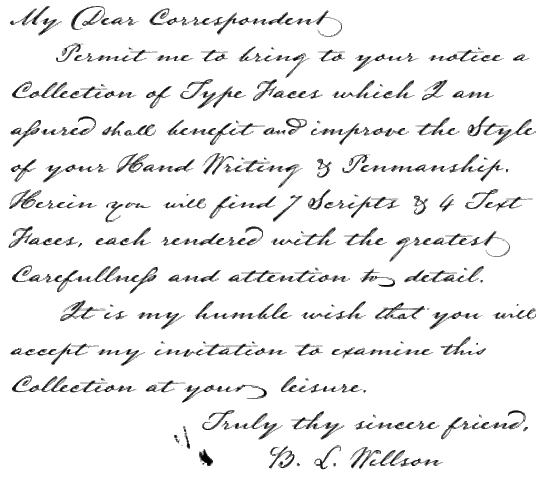 My Dear Correspondent
Permit me to bring to your notice a
Collection of Type Faces which I am
aſsured shall benefit and improve the Style
of your Hand Writing & Penmanship.
Herein you will find 7 Scripts & 4 Text
Faces, each rendered with the greatest
Carefullneſs and attention to detail.
It is my humble wish that you will
accept my invitation to examine this
Collection at your leisure.
Truly thy sincere friend,
B. L. Willson